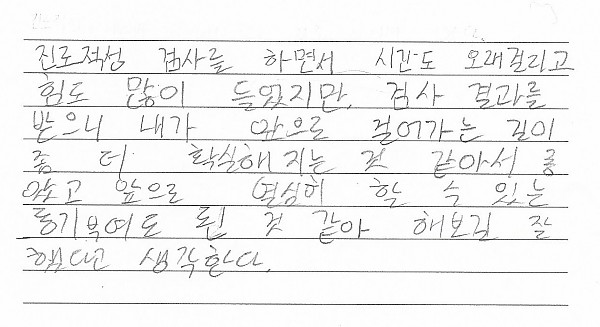 진로적성 검사를 하면서 시간도 오래걸리고
힘도 많이 들었지만, 검사 결과를
받으니 내가 앞으로 걸어가는 길이
좀 더 확실해 지는 것 같아서 좋
았고 앞으로 열심히 할 수 있는
동기부여도 된 것 같아 해보길 잘
했다고 생각한다.